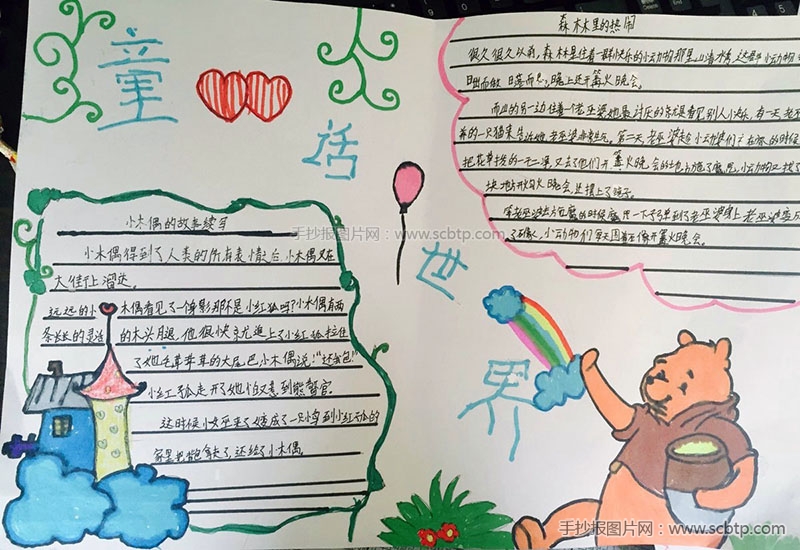 童
话
世
界
小木偶的故事续写
小木偶得到了人类的所有表情后,小木偶又在
大街上溜达。
远远的小木偶看见了一个身影那不是小红狐吗?小木偶有两
条长长的灵活的木头月退,他很快京尤追上了小红狐拉住
了她毛茸茸的大尾巴小木偶说:“还我包!”
小红狐走开了她 到熊警官。
这时候小女巫来了她变成了一只 到小红狐的
家里把 拿走了,还给了小木偶。
森林里的热闹
很久很久以前,森林里住着一群快乐的小动物那里山清水秀,这群小动物
日出而做 日落而息,晚上还开篝火晚会。
而山的另一边住着个老巫婆她最讨厌的就是看见别人快乐,有一天
养的一只猫来告诉她,老巫婆非常生气。第二天,老巫婆走在小动婆们 的时候
把花草 的一干二净,又去了他们开篝火晚会的地 施了魔
块地 火晚会,还摆上了镜子。
等老巫婆 施魔的时候魔 一下子 到了老巫婆身上,老巫婆变成
了石像,小动物们每天 开篝火晚会。
手抄报图片网:www.scbtp.com
手抄报图片网:www.scbtp.com